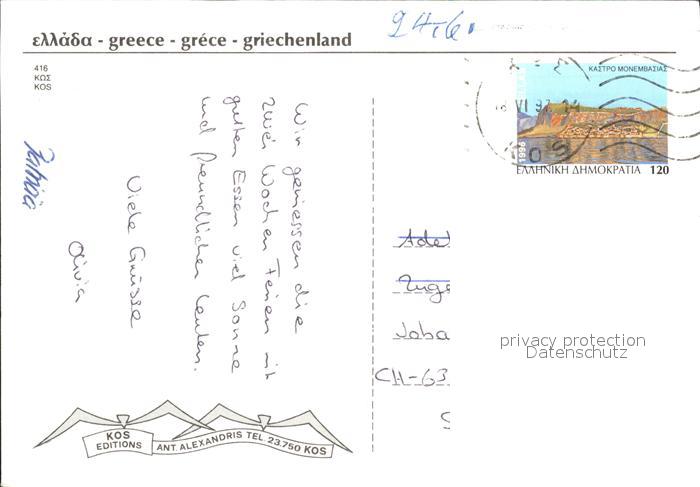 24.6.
ελλάδα - greece - gréce - griechenland
416
ΚΩΣ
KOS
ΚΑΣΤΡΟ ΜΟΝΕΜΒΑΣΙΑΣ
1996
ΕΛΛΗΝΙΚΗ ΔΗΜΟΚΡΑΤΙΑ 120
Wir geniessen die
zwei Wochen Ferien mit
gutem Essen viel Sonne
und freundlichen Leuten.
Viele Grüsse
Olivia
Patricia
Adel
Zuge
Joba
CH-63
privacy protection
Datenschutz
KOS
EDITIONS
ANT. ALEXANDRIS TEL. 23.750 KOS